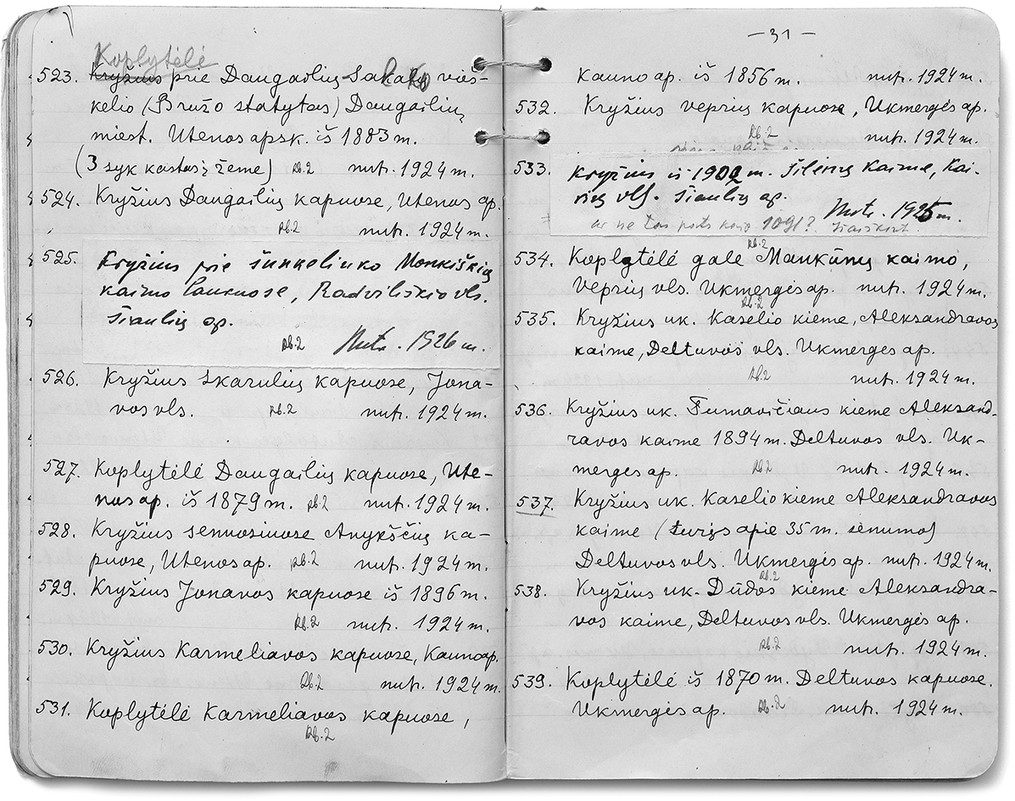 Koplytėlė
523. Kryžius prie Daugailių Sakalų vieš-
kelio (Bružo statytas) Daugailių
miest. Utenos apsk. iš 1883 m.
(3 syk kastas į žemę) Rb.2 nutr. 1924 m.
524. Kryžius Daugailių kapuose, Utenos ap.
Rb.2 nutr. 1924 m.
525. Kryžius prie šunkeliuko Monkiškių
kaimo laukuose, Radviliškio vls.
Šiaulių ap.
Rb.2 Nutr. 1926 m.
526. Kryžius Skarulių kapuose, Jona-
vos vls. Rb.2 nutr. 1924 m.
527. Koplytėlė Daugailių kapuose, Ute-
nos ap. iš 1879 m. Rb.2 nutr. 1924 m.
528. Kryžius senuosiuose Anykščių ka-
puose, Utenos ap. Rb.2 nutr. 1924 m.
529. Kryžius Jonavos kapuose iš 1896 m.
Rb.2 nutr. 1924 m.
530. Kryžius Karmeliavos kapuose, Kauno ap.
Rb.2 nutr. 1924 m.
531. Koplytėlė Karmeliavos kapuose,
Rb.2
— 31 —
Kauno ap. iš 1856 m. nutr. 1924 m.
532. Kryžius Veprių kapuose, Ukmergės ap.
Rb.2 nutr. 1924 m.
533. Kryžius iš 1902 m. Šilėnų kaime, Kai-
rių vls. Šiaulių ap. Nutr. 1925 m.
ar ne tas pats kaip 1091?
Rb.2
534. Koplytėlė gale Mankūnų kaimo,
Veprių vls. Ukmergės ap. nutr. 1924 m.
Rb.2
535. Kryžius uk. Kaselio kieme, Aleksandravos
kaime, Deltuvos vls. Ukmergės ap.
Rb.2 nutr. 1924 m.
536. Kryžius uk. Tumavičiaus kieme Aleksand-
ravos kaime 1894 m. Deltuvos vls. Uk-
mergės ap. Rb.2 nutr. 1924 m.
537. Kryžius uk. Kaselio kieme Aleksandravos
kaime (turįs apie 35 m. senumo)
Deltuvos vls. Ukmergės ap. nutr. 1924 m.
Rb.2
538. Kryžius uk. Dūdos kieme Aleksandra-
vos kaime, Deltuvos vls. Ukmergės ap.
Rb.2 nutr. 1924 m.
539. Koplytėlė iš 1870 m. Deltuvos kapuose.
Ukmergės ap. Rb.2 nutr. 1924 m.